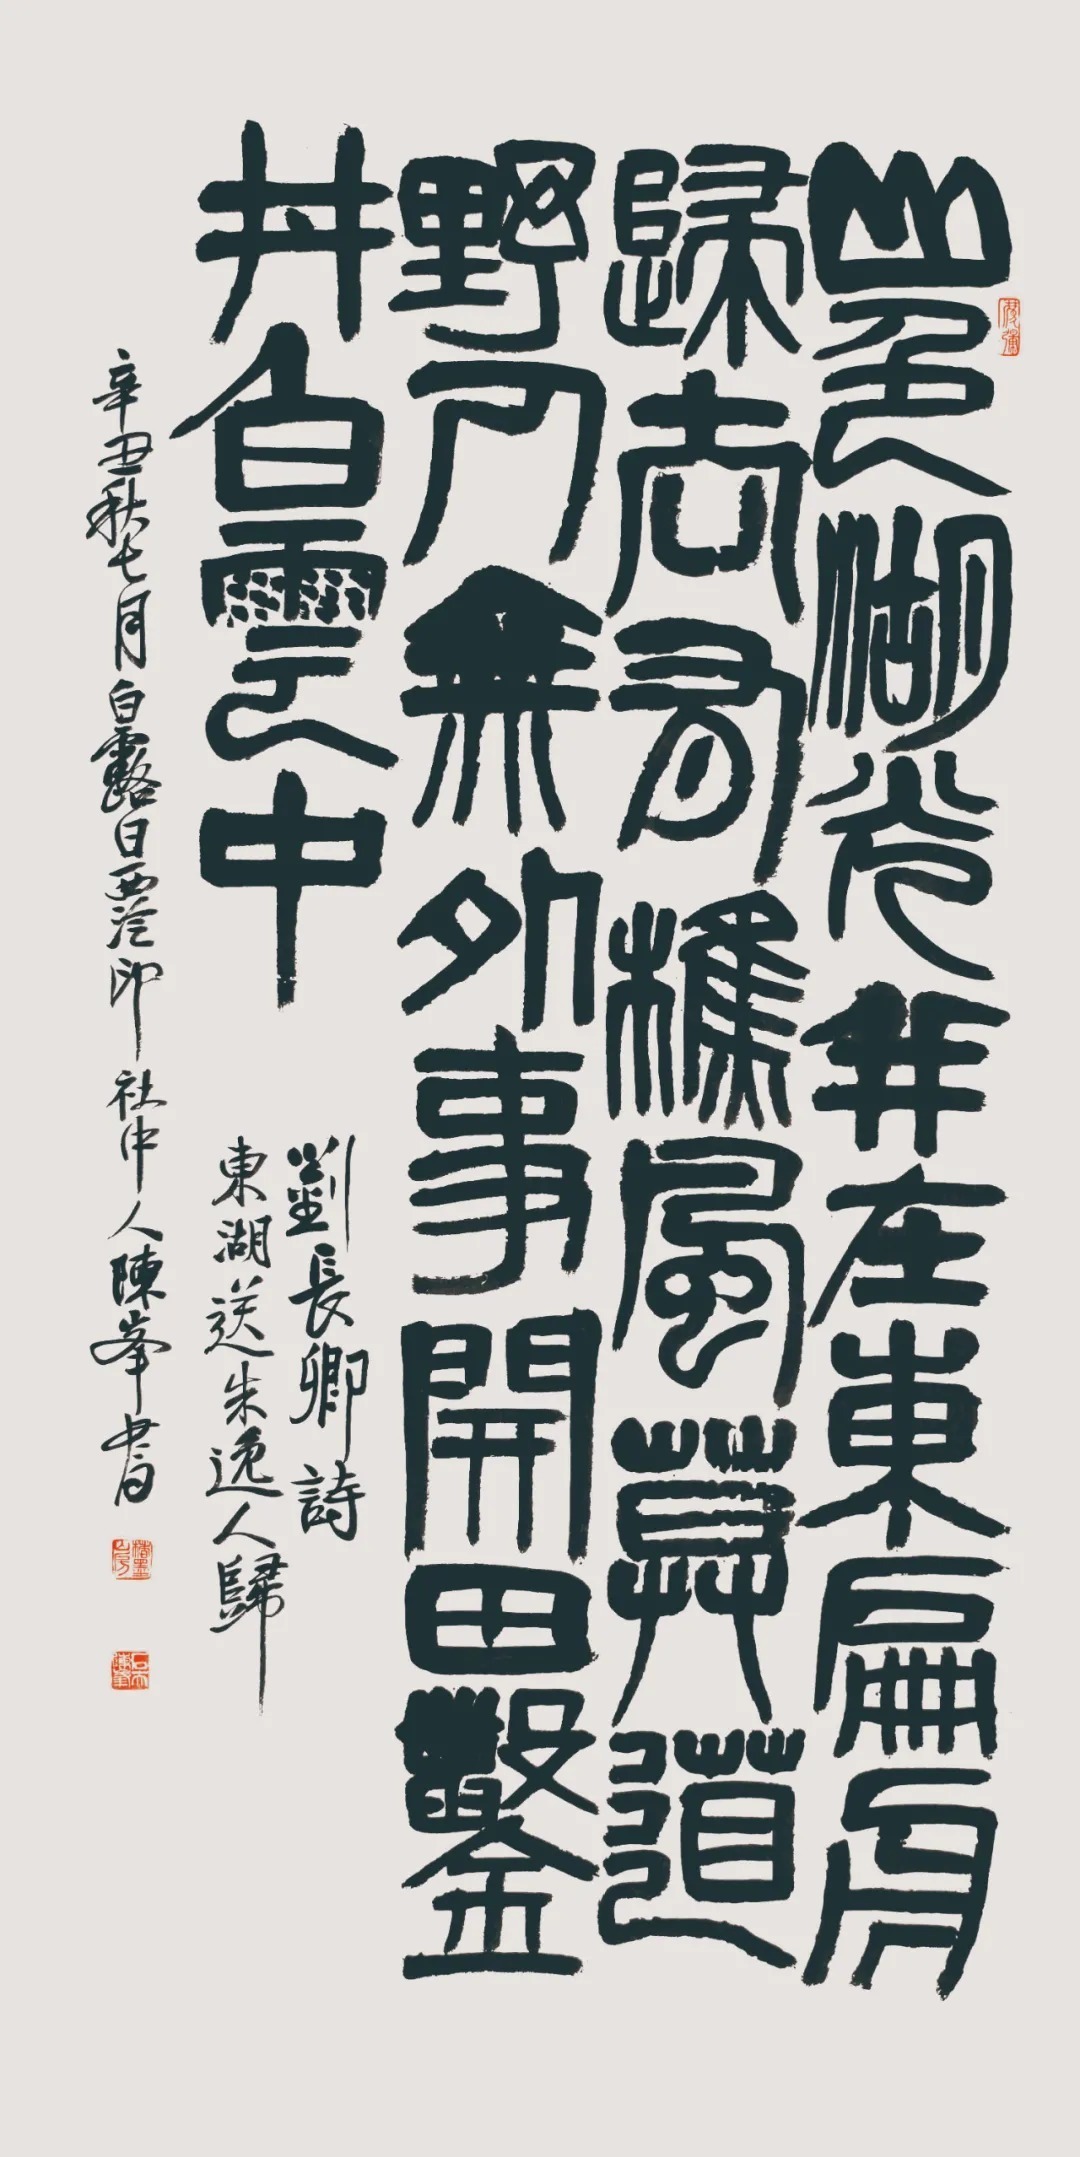 山色湖光并在東扁舟
歸去有樵風莫道
野人無外事開田鑿
井白雲中
劉長卿詩
東湖送朱逸人歸
辛丑秋七月白露日西泠印社中人陳峯書